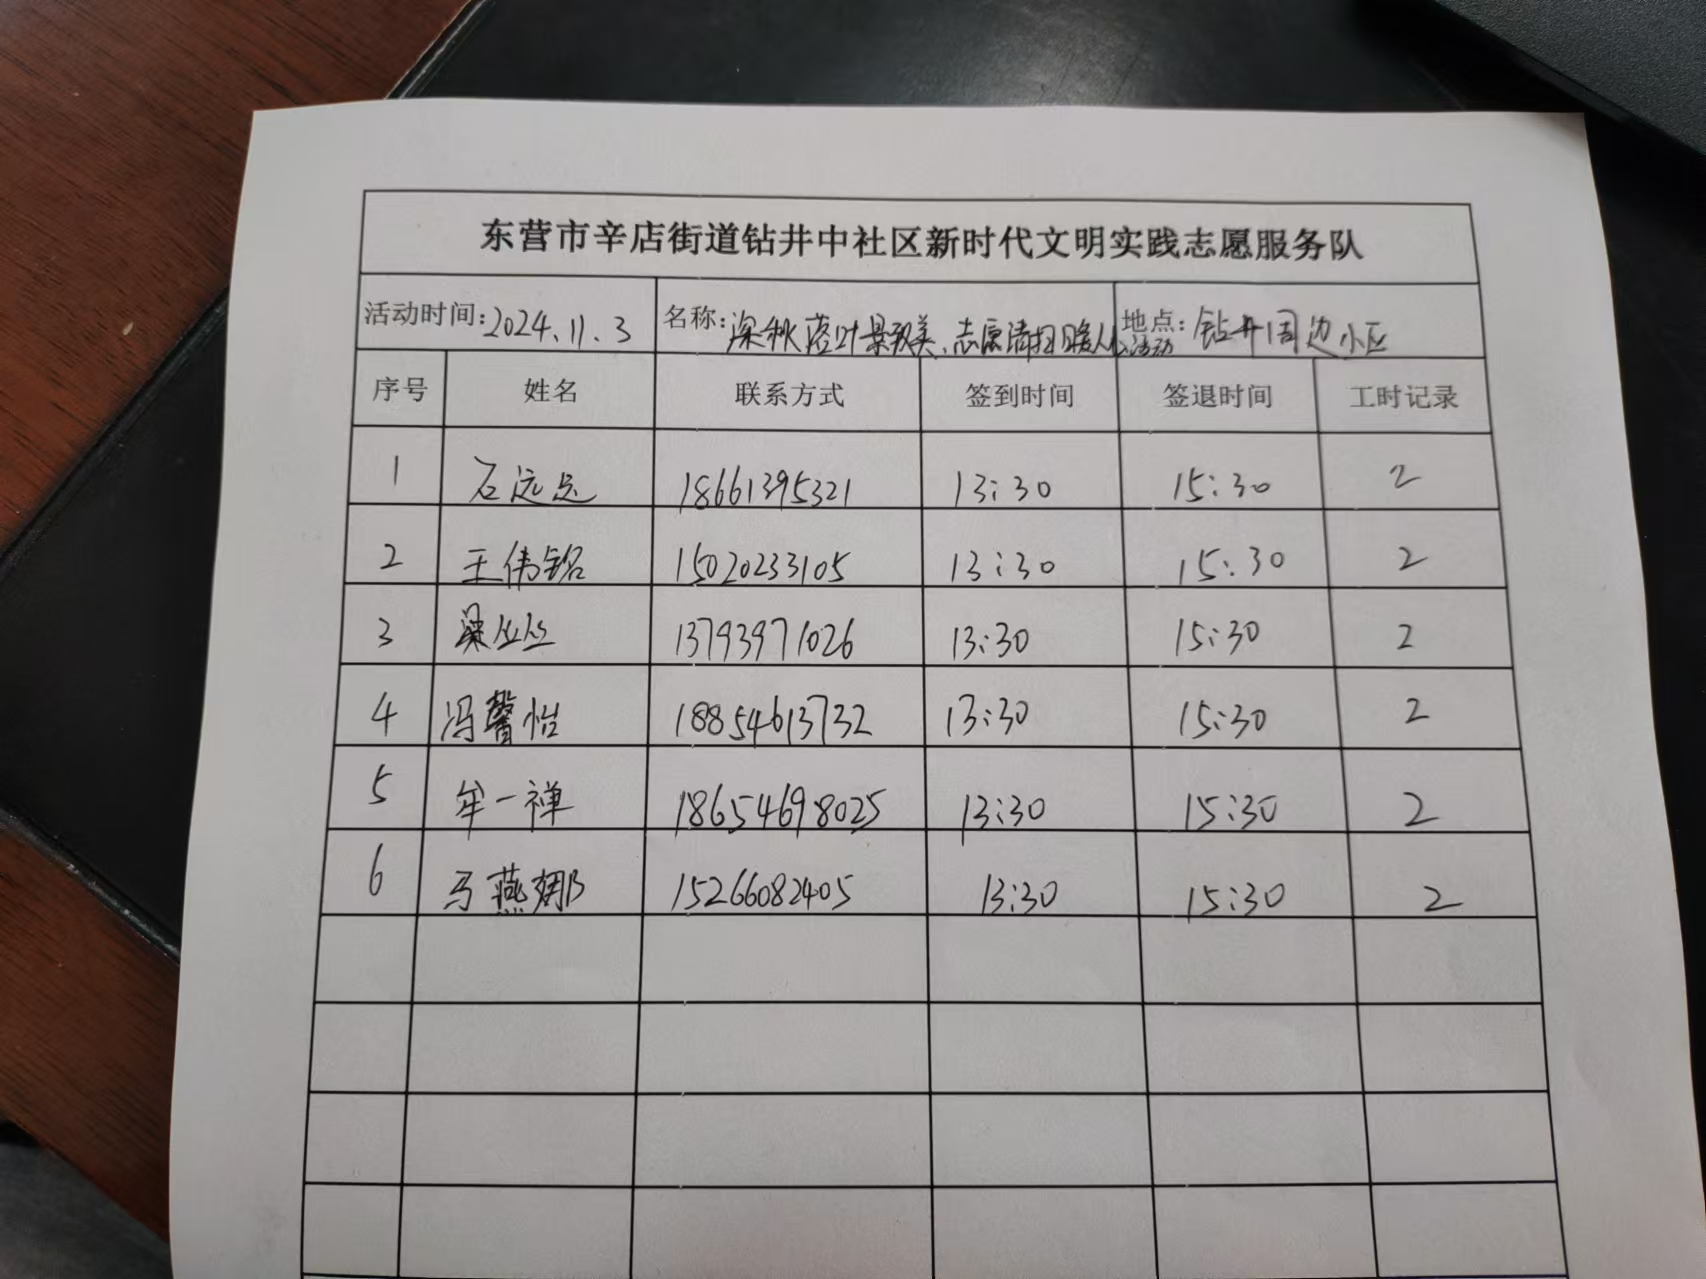 东营市辛店街道钻井中社区新时代文明实践志愿服务队
活动时间:2024.11.3 名称:深秋落叶景致美、志愿清扫暖人心活动 地点:钻井周边小区
序号 姓名 联系方式 签到时间 签退时间 工时记录
1 石远 18661395321 13:30 15:30 2
2 王伟铭 15020233105 13:30 15:30 2
3 梁丛丛 13793971026 13:30 15:30 2
4 冯馨怡 18854613732 13:30 15:30 2
5 牟一禅 18654698025 13:30 15:30 2
6 马燕娜 15266082405 13:30 15:30 2